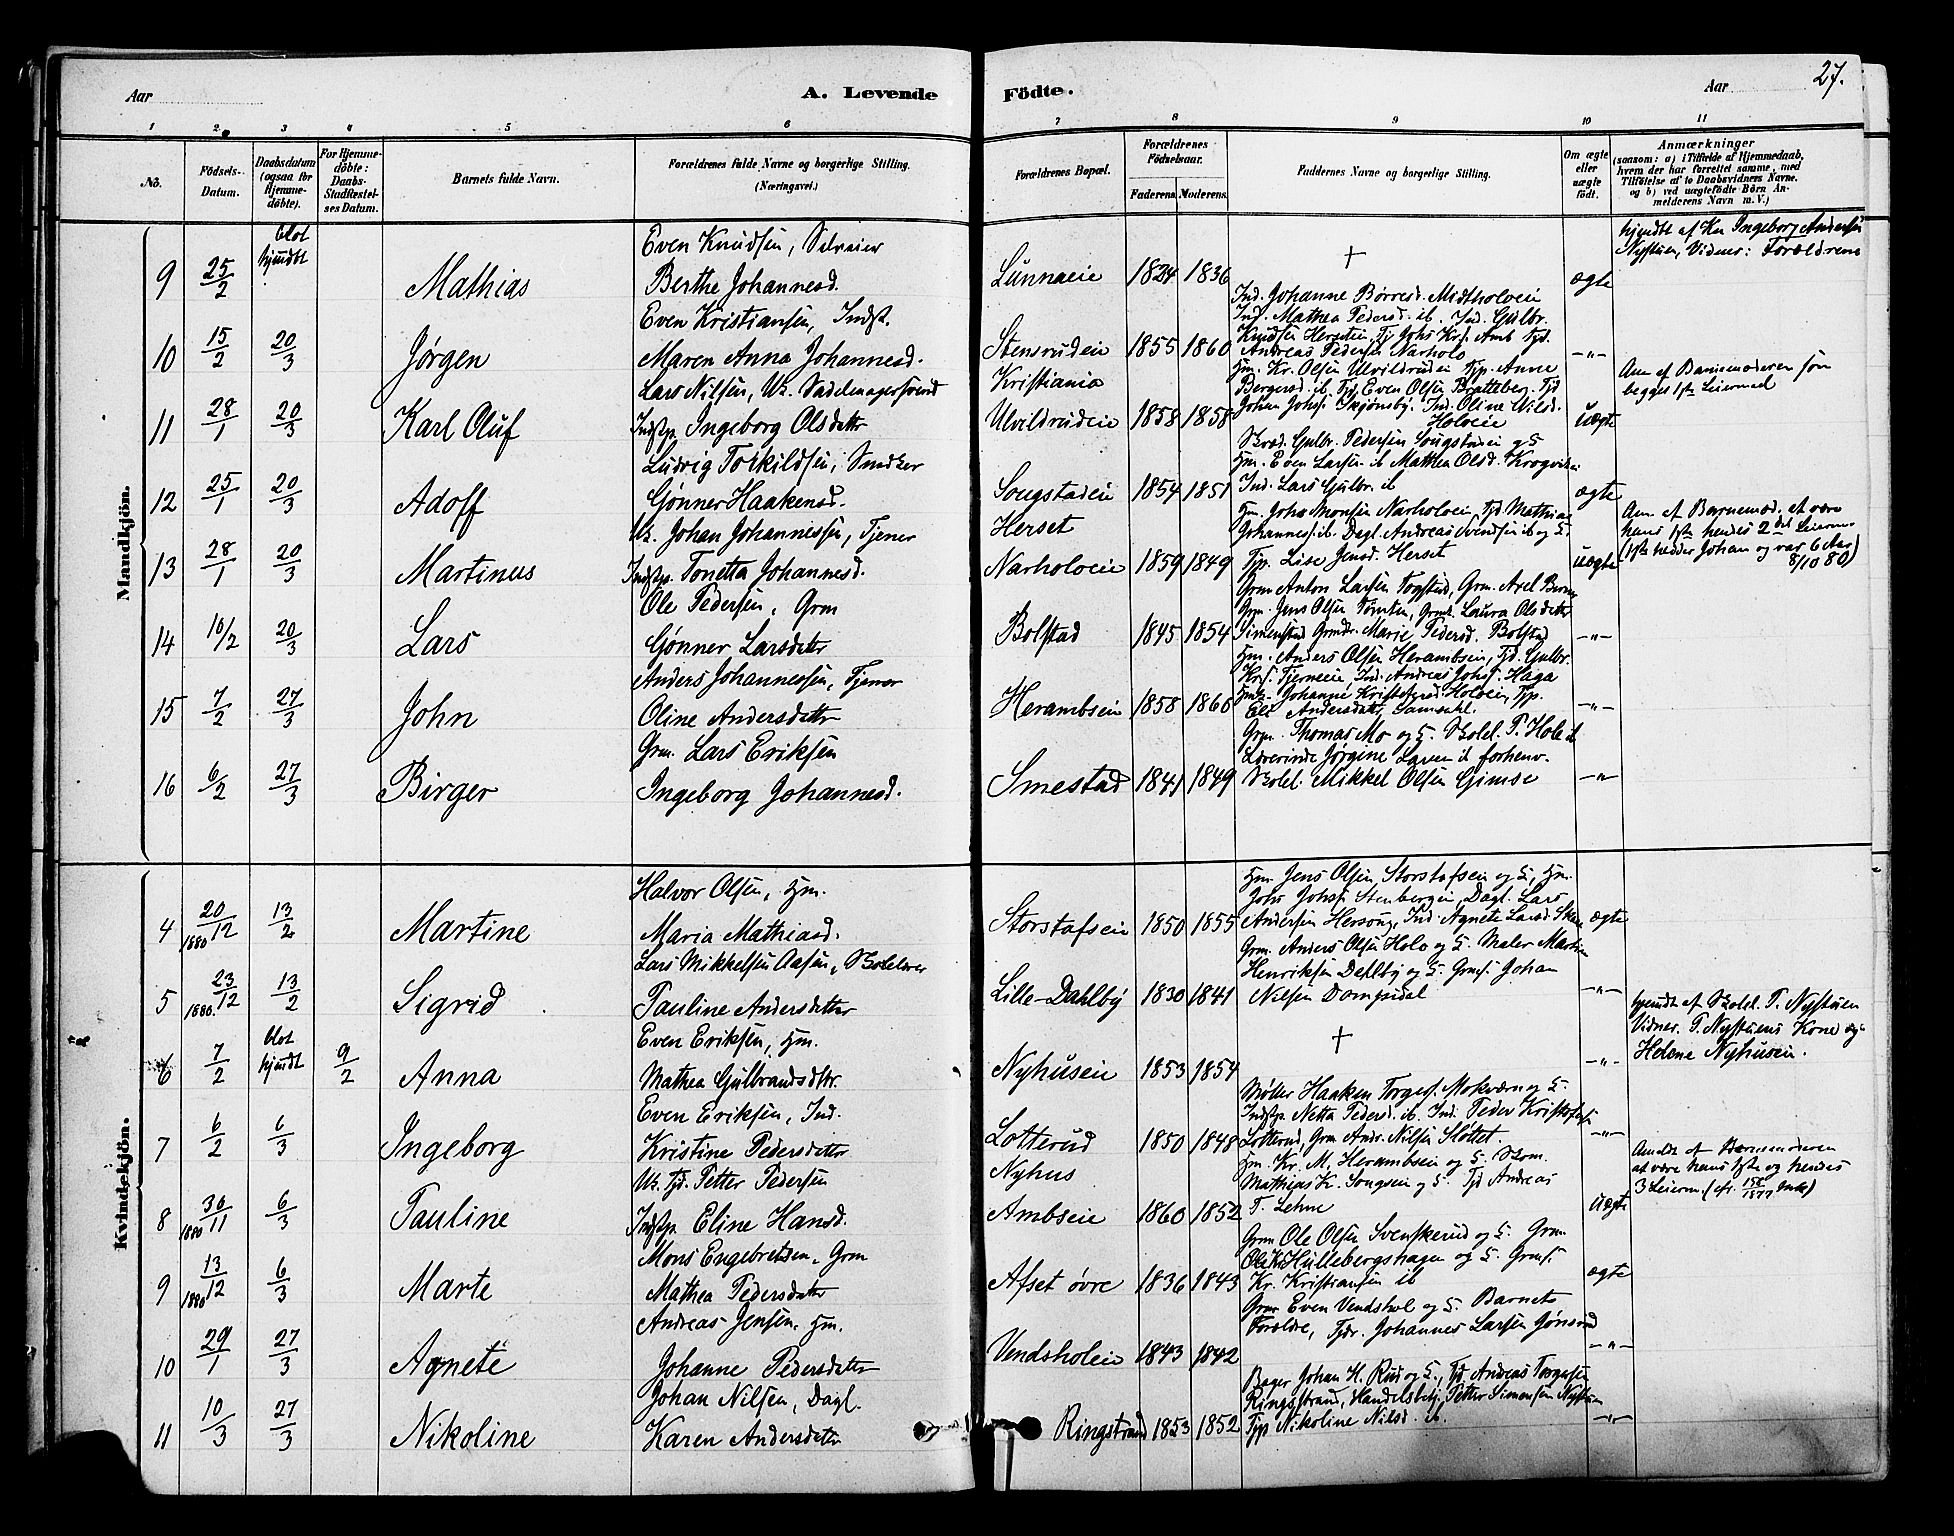 Aar
A. Levende
Födte.
Aar
27.
1 2 3 4 5 6 7 8 9 10 11
No.
Födsels-Datum.
Daabsdatum (ogsaa for Hjemme-döbte).
For Hjemme-döbte: Daabs-Stadfæstel-ses Datum.
Barnets fulde Navn.
Forældrenes fulde Navne og borgerlige Stilling. (Næringsvei.)
Forældrenes Bopæl.
Forældrenes Födselsaar.
Faderens. Moderens.
Faddernes Navne og borgerlige Stilling.
Om ægte eller uægte födt.
Anmærkninger
(saasom: a) i Tilfælde af Hjemmedaab,
hvem der har forrettet samme, med
Tilföielse af to Daabsvidners Navne.
og b) ved uægtefödte Börn An-
melderens Navn m. V.)
Mandkjön.
9 25/2 blot hjmdbt Mathias
Even Knudsen, Selveier
Berthe Johannesd.
Lunnaeie 1824 1836 † ægte
hjmdbt af Ingeborg Andersen
Nystuen, Vidner: Forældrene
10 15/2 20/3 Jørgen
Even Kristiansen, Indst.
Maren Anna Johannesd.
Stensrudeie 1855 1860
Ind. Johanne Børresd. Midtholoeie
Ind. Mathea Pedersd. ib. Ind. Gulbr.
Andreas Pedersen Narholo
-"-
11 28/1 20/3 Karl Oluf
Lars Nilsen, Uk. Sadelmagersvend
Indstp. Ingeborg Olsdatter
Kristiania
Ulvildrudeie 1858 1858
Hm. Kr. Olsen Ulvildrudeie Tjp. Anne
Bergersd. ib Tjd. Even Olsen Bratteberg, Tjd.
Johan Johs. Skjønsby. Ind. Oline Nilsd.
Holoeie
uægte
Anm. af Barnemoderen som
begges 1ste Leiermaal
12 25/1 20/3 Adolf
Ludvig Torkildsen, Snedker
Gønner Haakensd.
Sougstadeie 1854 1851
Skræd. Gulbr. Pedersen Sougstadeie og H.
Hm. Even Larsen ib Matthea Olsd. Krogvikeie
Ind. Lars Gulbr. ib
ægte
13 28/1 20/3 Martinus
Uk. Johan Johannessen, Tjener
Indstp. Tonetta Johannesd.
Herset
Narholoeie 1859 1849
Hm. Johs Monsen Narholoeie Tjd. Mathias
Johanness. ib. Dagl. Andreas Svendsen ib og H.
Tjp. Lise Jensd. Herset
uægte
Anm. af Barnemod. at være
hans 1ste hendes 2det Leierm.
(1ste hedder Johan og var 6 Aar
8/10 80)
14 10/2 20/3 Lars
Ole Pedersen, Grm
Gønner Larsdatter
Bolstad 1845 1854
Grm Anton Larsen Fogstad, Grm. Axel
Grm. Jens Olsen Tomten, Grmd. Laura Olsdatter
Simenstad Grmdr. Marie Pedersd. Bolstad
-"-
15 7/2 27/3 John
Anders Johannessen, Tjener
Oline Andersdatter
Herambseie 1858 1860
Hm. Anders Olsen Herambseie, Tjd. Gulbr.
Krs. Tjerneeie, Ind. Andreas Johs. Haga
Hmk. Johanne Kristofersd. Holoeie, Tjp.
Eli Andersdatter, Samdahl.
-"-
16 6/2 27/3 Birger
Grm. Lars Eriksen
Ingeborg Johannesd.
Smestad 1841 1849
Grm. Thomas Mo og H. Skolel. P. Hole ib
Lærerinde Jørgine Laven ib forhenv.
Skolel. Mikkel Olsen Gimse
-"-
Kvindekjön.
4 20/12 1880 13/2 Martine
Halvor Olsen, Hm.
Maria Mathiasd.
Storstafseie 1850 1855
Hm. Jens Olsen Storstafseie og H, Hm.
Johs Johs. Stenbergeie, Dagl. Lars
Andersen Hersoug, Ind. Agnete Larsd.
ægte
5 23/12 1880. 13/2 Sigrid
Lars Mikkelsen Aasen, Skolelærer
Pauline Andersdatter
Lille-Dahlby 1830 1841
Grm. Anders Olsen Holo og H. Maler Martin
Henriksen Dehlby og H. Grms. Johan
Nilsen Dompidal
-"-
6 7/2 blot hjmdbt 9/2 Anna
Even Eriksen, Hm.
Mathea Gulbrandsdtr.
Nyhuseie 1853 1854 † -"-
hjmdt af Skolel. P. Nystuen
Vidner. P. Nystuens Kone og
Helene Nyhuseie.
7 6/2 6/3 Ingeborg
Even Eriksen, Ind.
Kristine Pedersdatter
Lotterud 1850 1848
Møller Haaken Torges. Mokværn og H.
Indstp. Netta Pedersd. ib. Ind. Peder Kristofers.
Lotterud, Grm. Andr. Nilsen Slottet.
-"-
8 30/11 1880 6/3 Pauline
Uk. Tjd. Petter Pedersen
Indstp. Eline Hansd.
Nyhus
Ambseie 1860 1852
Hm. Kr. M. Herambseie og H. Skom.
Mathias K. Sougseie og H. Tjd Andreas
T. Lehne
uægte
Anmeldt af Barnemoderen
at være hans 1ste og hendes
3 Leierm.
9 13/12 1880 6/3 Marte
Mons Engebretsen, Grm
Mathea Pedersdatter
Afset øvre 1836 1843
Grm Ole Olsen Svenskerud og H. Grm
Ole K. Hullebergshagen og H. Grms.
Kr. Kristiansen ib
ægte
10 29/1 27/3 Agnete
Andreas Jensen, Hm.
Johanne Pedersdatter
Vendsholeie 1843 1842
Grm Even Vendshol og H. Barnets
Forældre, Tjdr. Johannes Larsen Gønsrud
-"-
11 10/3 27/3 Nikoline
Johan Nilsen, Dagl.
Karen Andersdatter
Ringstrand 1853 1852
Bager Johan H. Rud og H., Tjd Andreas Torgersen
Ringstrand, Handelsbetj. Petter Simensen Nystuen
Tjp Nikoline Nilsd. ib.
-"-